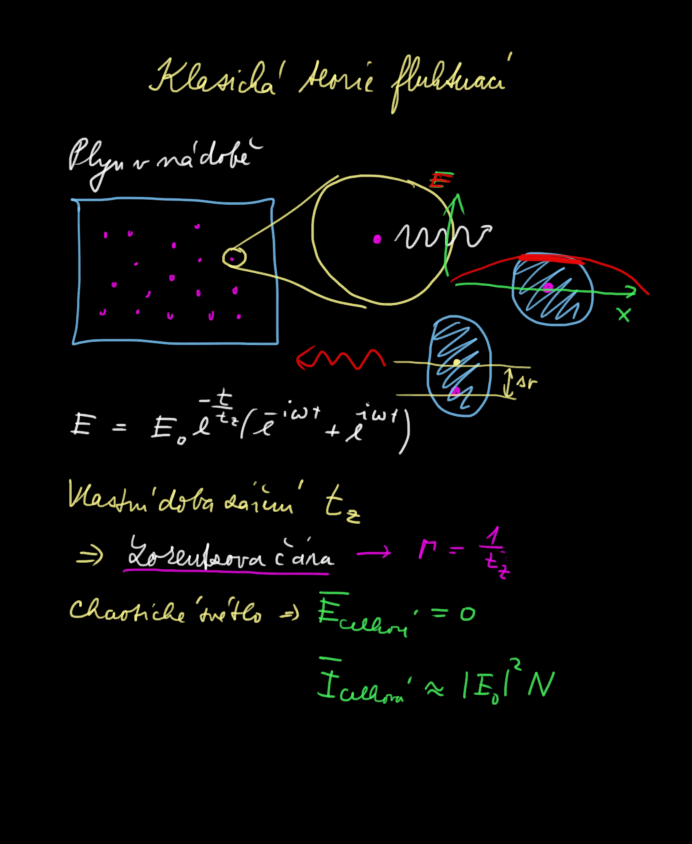 Klasická teorie fluktuací
Plyn v nádobě
E
x
Δr
E = E₀ e^(-t/t_z) (e^(-iωt) + e^(iωt))
Vlastní doba záření t_z
⇒ Lorentzova čára → Γ = 1/t_z
Chaotické světlo ⇒ E̅_celkový = 0
I̅_celková ≈ |E₀|² N